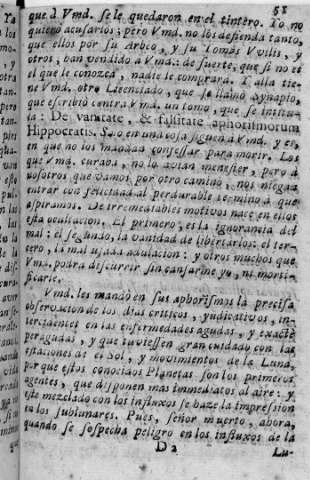 58
que à Vmd. se le quedaron en el tintero. Yo no
quiero acusarlos; pero Vmd. no los defienda tanto,
que ellos por su Arbeo, y su Tomàs Vvilis, y
otros, han vendido à Vmd.: de suerte, que si no es
el que le conozca, nadie le comprara. Y allá tie-
ne Vmd. otro Licenciado, que se llamò Synapio,
que escribiò contra Vmd. un tomo, que se intitu-
la: De vanitate, & falsitate aphorismorum
Hippocratis. Solo en una cosa siguen à Vmd. y es,
en que no los mandan confessar para morir. Los
que Vmd. curaba, no lo avian menester; pero à
nosotros que vamos por otro camino, nos niegan
entrar con felicidad al perdurable termino à que
aspiramos. De irremediables motivos nace en ellos
esta ocultacion. El primero, es la ignorancia del
mal: el segundo, la vanidad de libertarlos: el ter-
cero, la mal usada adulacion: y otros muchos que
Vmd. podrà discurrir sin cansarme yo, ni morti-
ficarle.
Vmd. les mandò en sus aphorismos la precisa
observacion de los dias criticos, y judicativos, in-
tercidentes en las enfermedades agudas, y exacte
peragudas, y que tuviessen gran cuidado con las
estaciones de el Sol, y movimientos de la Luna,
por que estos conocidos Planetas son los primeros
agentes, que disponen mas immediatos al aire: y
este mezclado con los influxos se haze la impression
en los sublunares. Pues, señor muerto, ahora,
quando se sospecha peligro en los influxos de la
D 2
Lu-